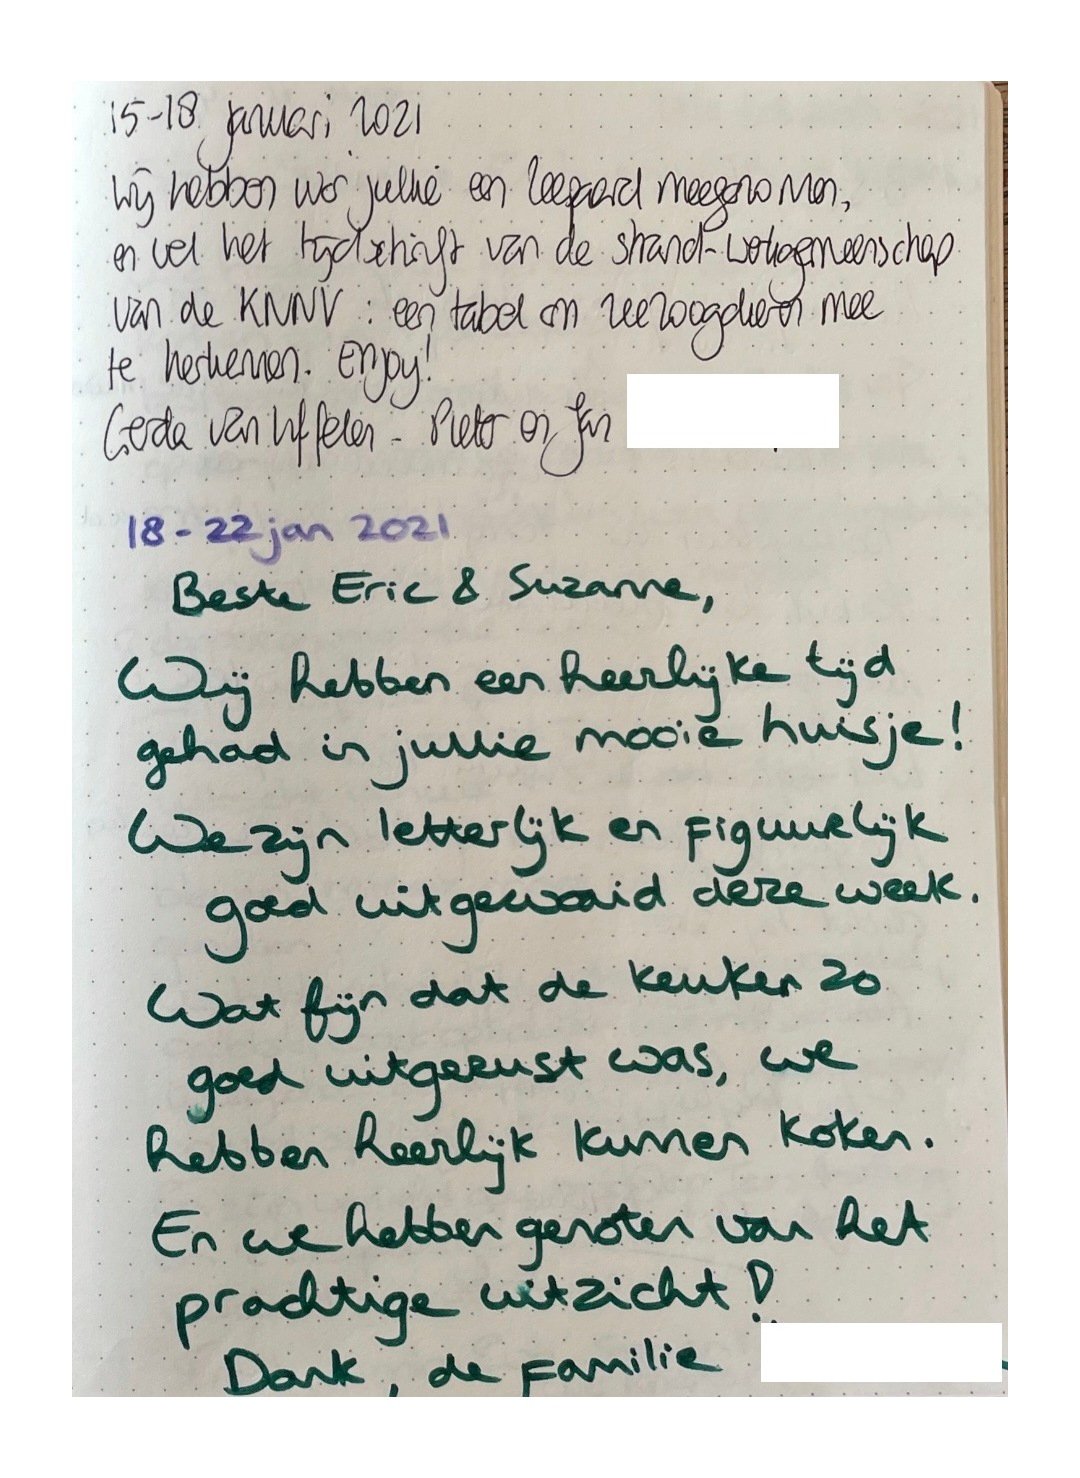 15-18 januari 2021
Wij hebben voor jullie een leespaard meegenomen,
en wel het tijdschrift van de strand-werkgemeenschap
van de KNNV: een tabel om zeezoogdieren mee
te herkennen. Enjoy!
Gerda van Uffelen - Pieter en Jan
18-22 jan 2021
Beste Eric & Suzanne,
Wij hebben een heerlijke tijd
gehad in jullie mooie huisje!
We zijn letterlijk en figuurlijk
goed uitgewaaid deze week.
Wat fijn dat de keuken zo
goed uitgerust was, we
hebben heerlijk kunnen koken.
En we hebben genoten van het
prachtige uitzicht!
Dank, de familie